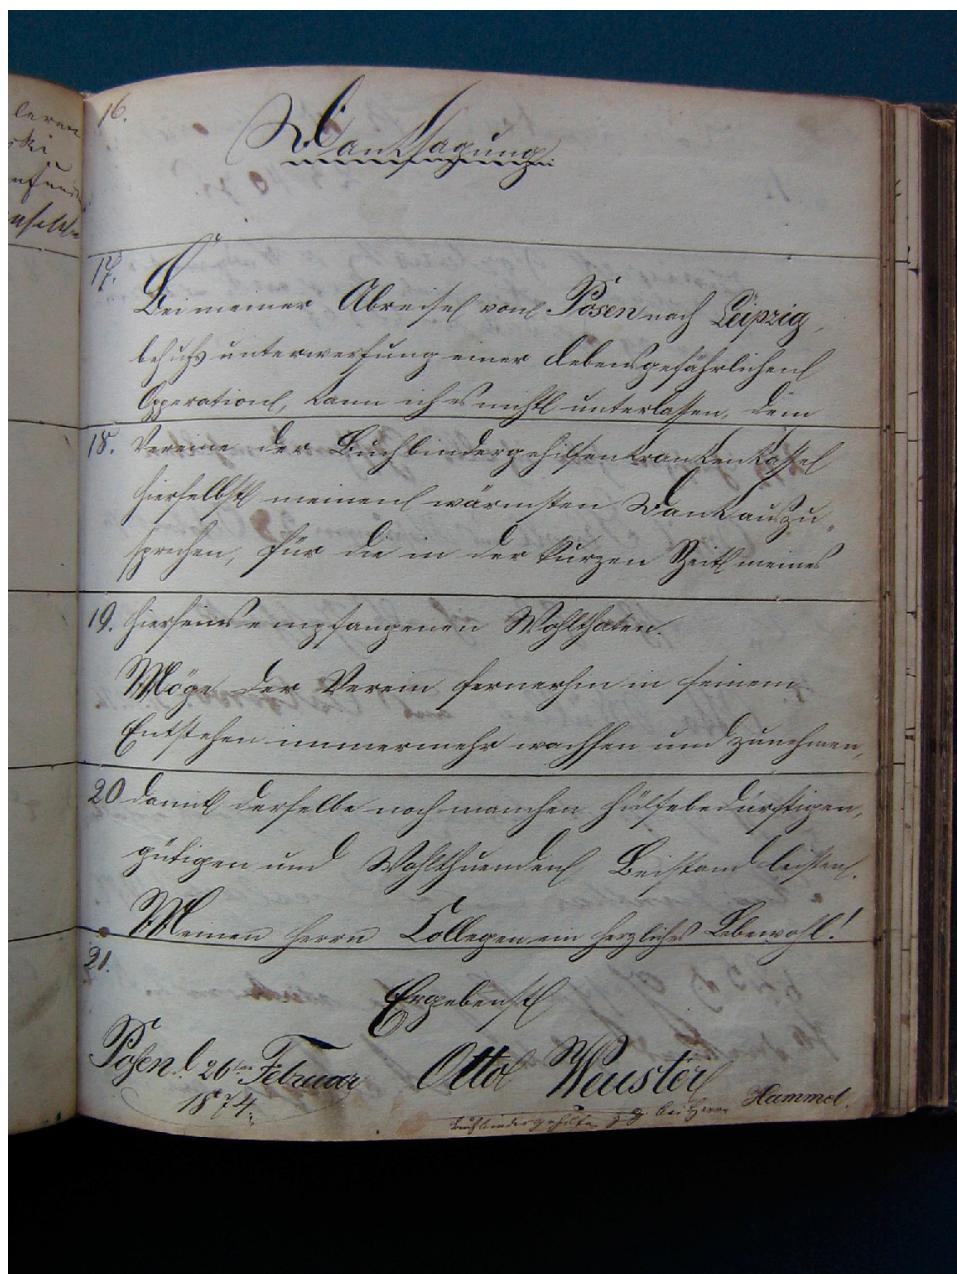 16.
Danksagung.
17.
Bei meiner Abreise von Posen nach Leipzig,
behufs unterwerfung einer Lebensgefährlichen
Opperation, kann ich es nicht unterlassen, dem
18. Vereine der Buchbindergehilfenkrankenkasse
hierselbst meinen wärmsten Dank auszu-
sprechen, für die in der kurzen Zeit meines
19. Hierseins empfangenen Wohlthaten.
Möge der Verein fernerhin in seinem
Entstehen immermehr wachsen und zunehmen,
20 damit derselbe noch manchen hülfebedürftigen,
gütigen und Wohlthuenden Beistand leisten.
Meinen Herrn Collegen ein herzliches Lebewohl!
21.
Ergebenst
Posen d. 26ten Februar
1874.
Otto Weuster
Buchbindergehilfe z. Z. bei Herrn Hammel.